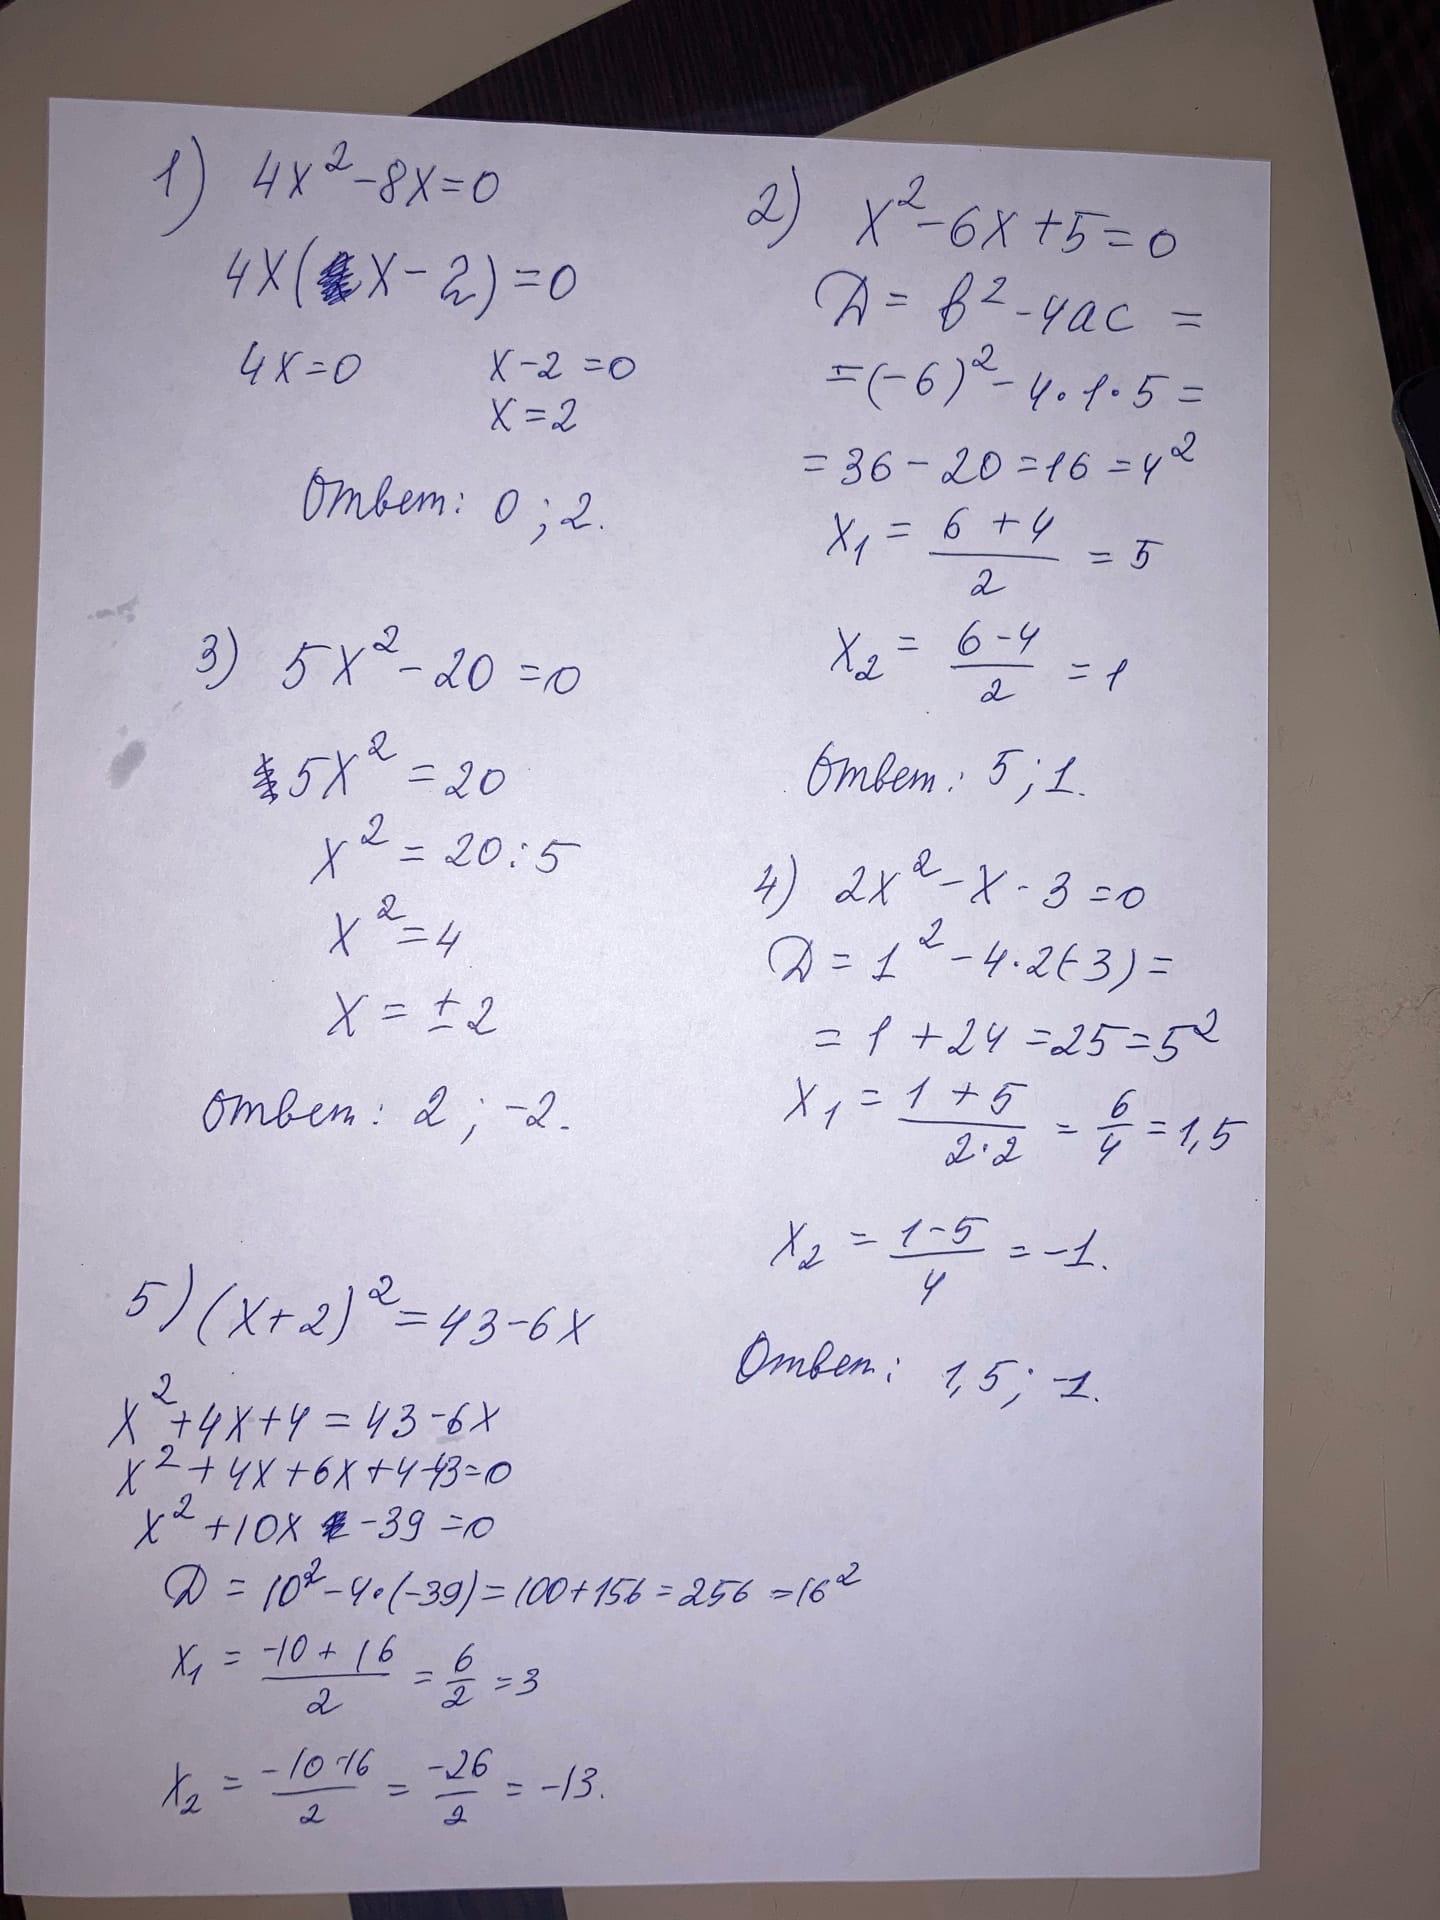 1) 4x² - 8x = 0
4x(x - 2) = 0
4x = 0 x - 2 = 0
x = 2
Ответ: 0 ; 2.
2) x² - 6x + 5 = 0
Д = b² - 4ac =
= (-6)² - 4·1·5 =
= 36 - 20 = 16 = 4²
x₁ = (6 + 4)/2 = 5
x₂ = (6 - 4)/2 = 1
Ответ: 5 ; 1.
3) 5x² - 20 = 0
5x² = 20
x² = 20 : 5
x² = 4
x = ± 2
Ответ: 2 ; -2.
4) 2x² - x - 3 = 0
Д = 1² - 4·2(-3) =
= 1 + 24 = 25 = 5²
x₁ = (1 + 5)/(2·2) = 6/4 = 1,5
x₂ = (1 - 5)/4 = -1.
Ответ: 1,5 ; -1.
5) (x + 2)² = 43 - 6x
x² + 4x + 4 = 43 - 6x
x² + 4x + 6x + 4 - 43 = 0
x² + 10x - 39 = 0
Д = 10² - 4·(-39) = 100 + 156 = 256 = 16²
x₁ = (-10 + 16)/2 = 6/2 = 3
x₂ = (-10 - 16)/2 = -26/2 = -13.